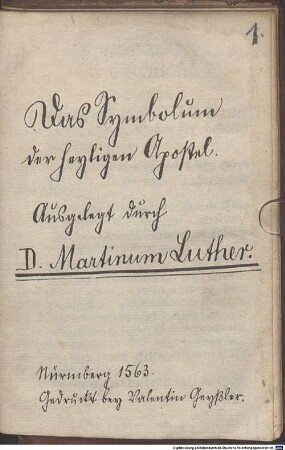 1.
Das Symbolum
der heyligen Apostel.
Ausgelegt durch
D. Martinum Luther.
Nürmberg 1563.
Gedruckt bey Valentin Geyßler.